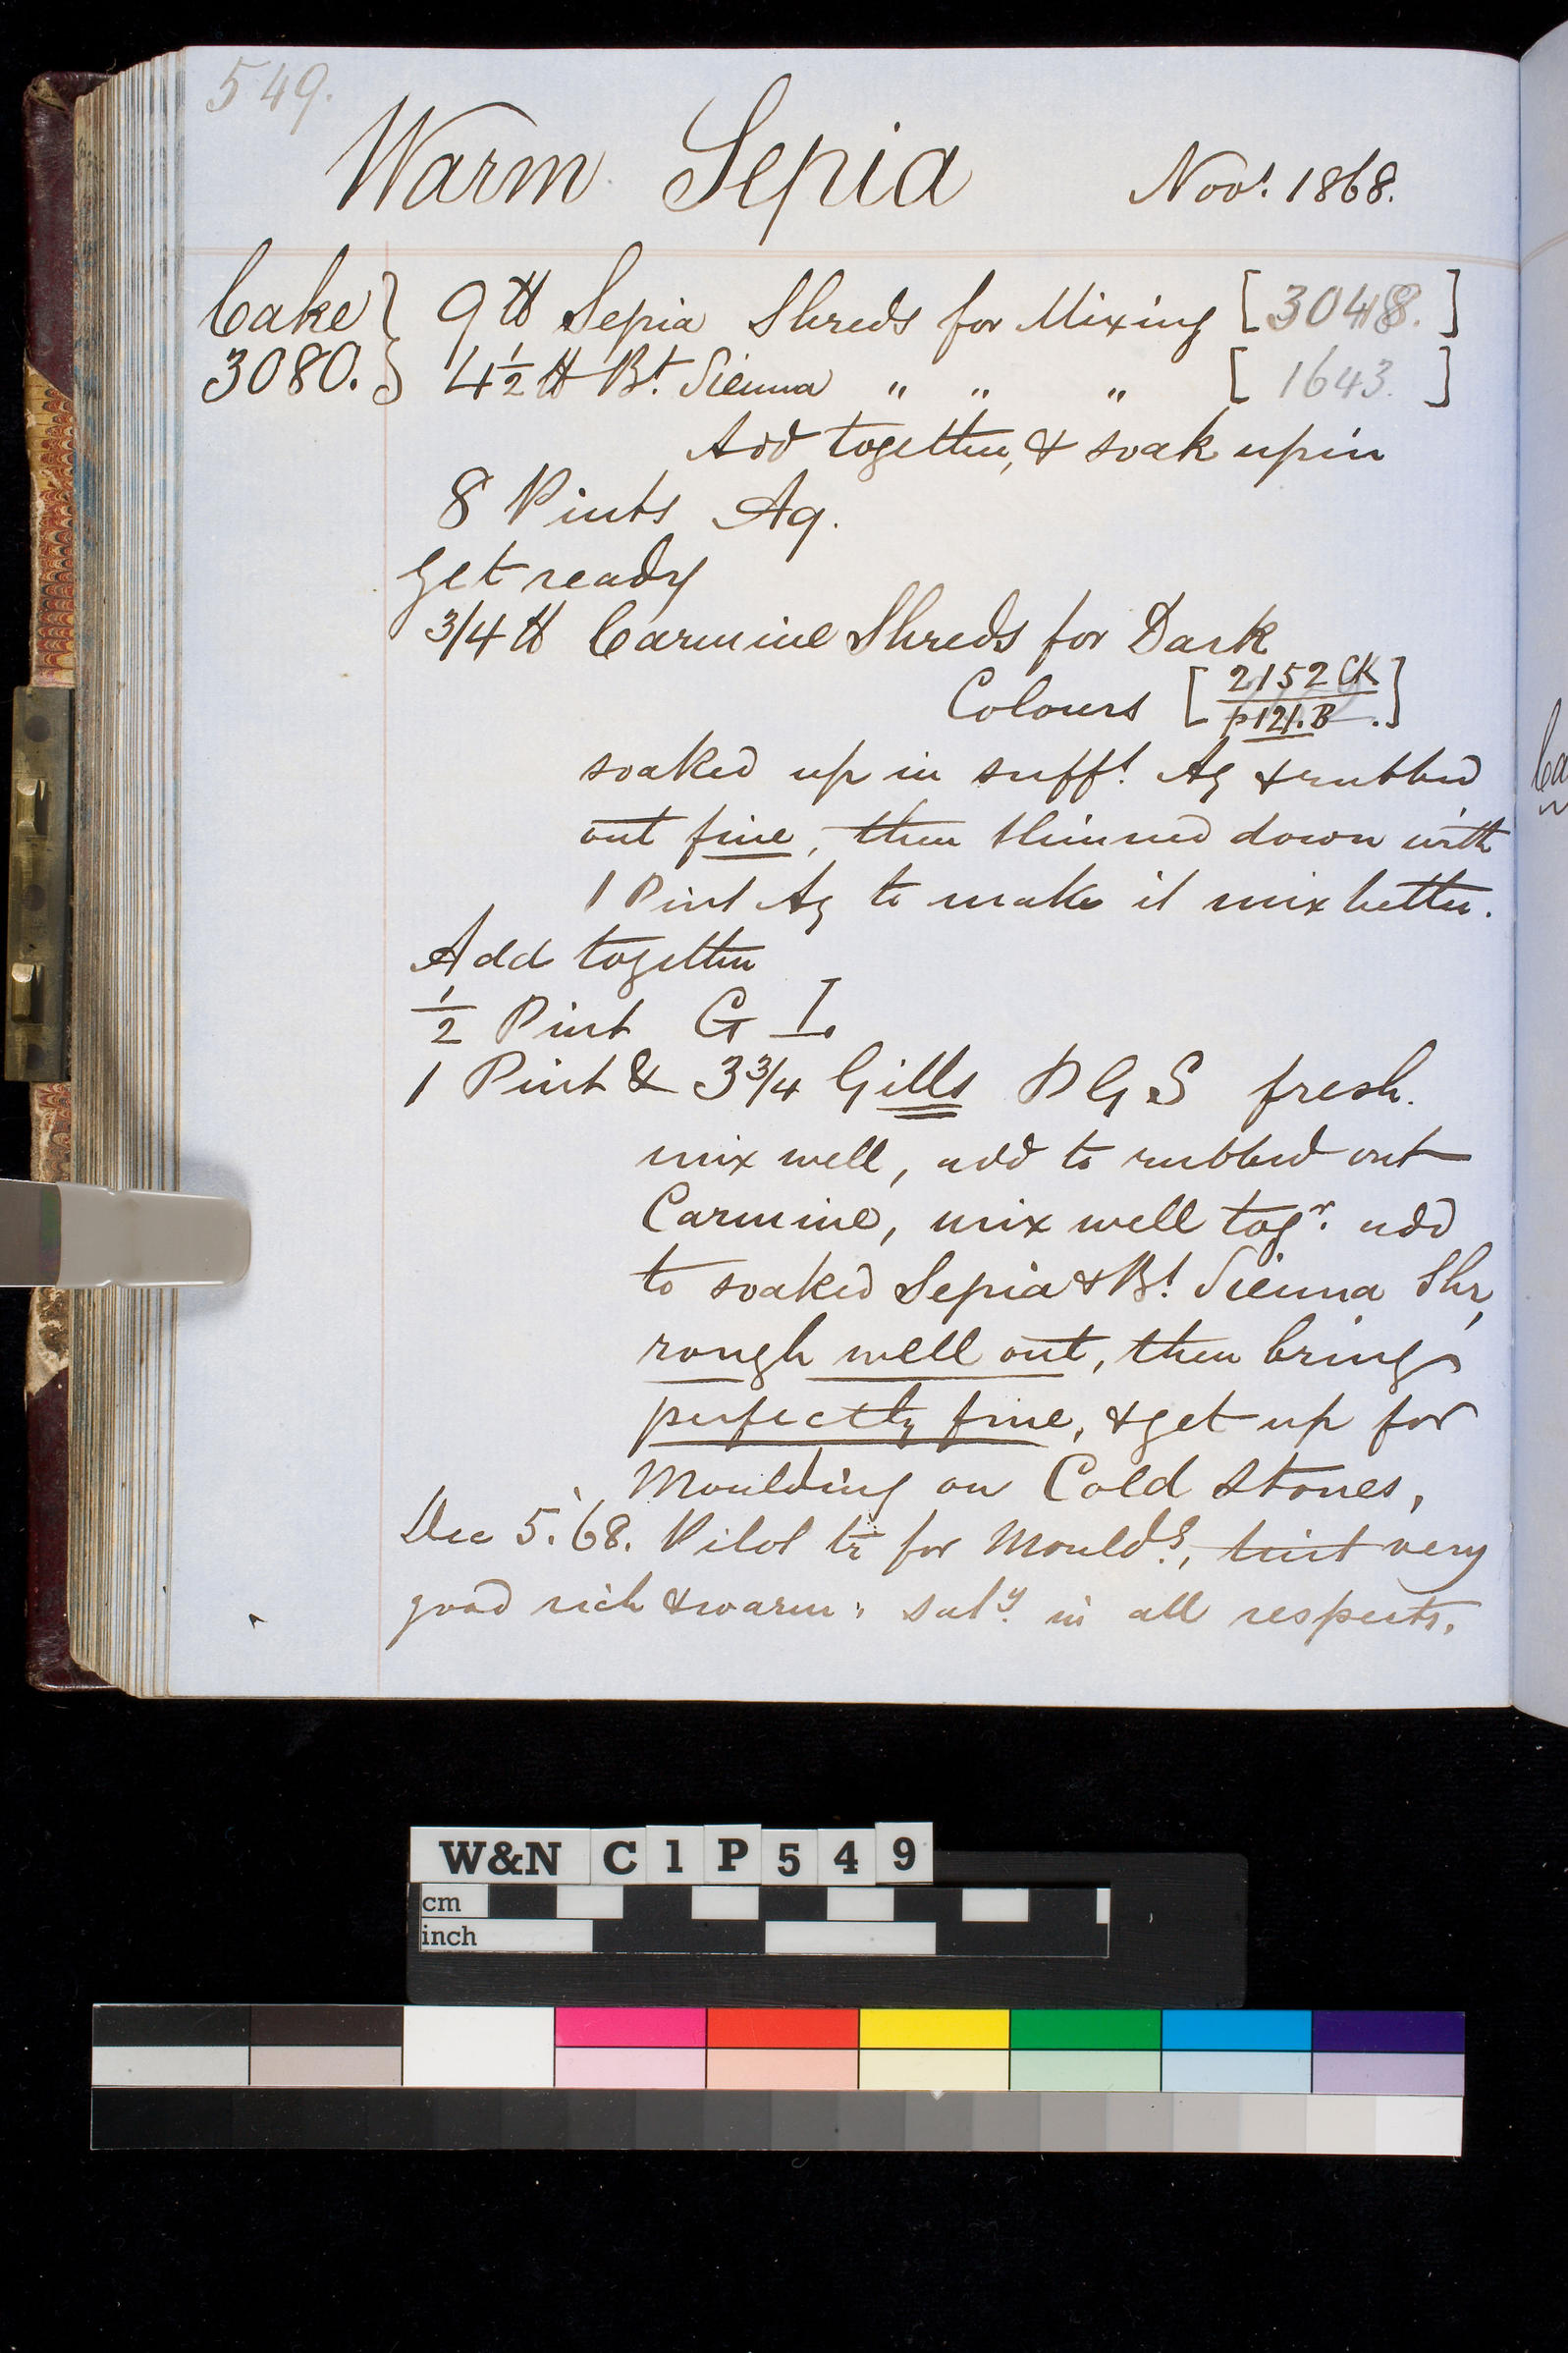 549.
Warm Sepia Novr. 1868.
Cake } 9 ℔ Sepia Shreds for Mixing [3048.]
3080. } 4½ ℔ Bt. Sienna " " " [1643.]
Add together, & soak up in
8 Pints Aq.
get ready
3/4 ℔ Carmine Shreds for Dark
Colours [2152 CK / p121.B.]
soaked up in sufft. Aq & rubbed
out fine, then thinned down with
1 Pint Aq to make it mix better.
Add together
½ Pint G I.
1 Pint & 3¾ Gills P G S fresh.
mix well, add to rubbed out
Carmine, mix well togr. add
to soaked Sepia & Bt. Sienna Shr,
rough well out, then bring
perfectly fine, & get up for
Moulding on Cold Stones,
Dec 5. '68. Pilot for Mouldg., tint very
good rich & warm; saty. in all respects.
W&N C1P549
cm
inch